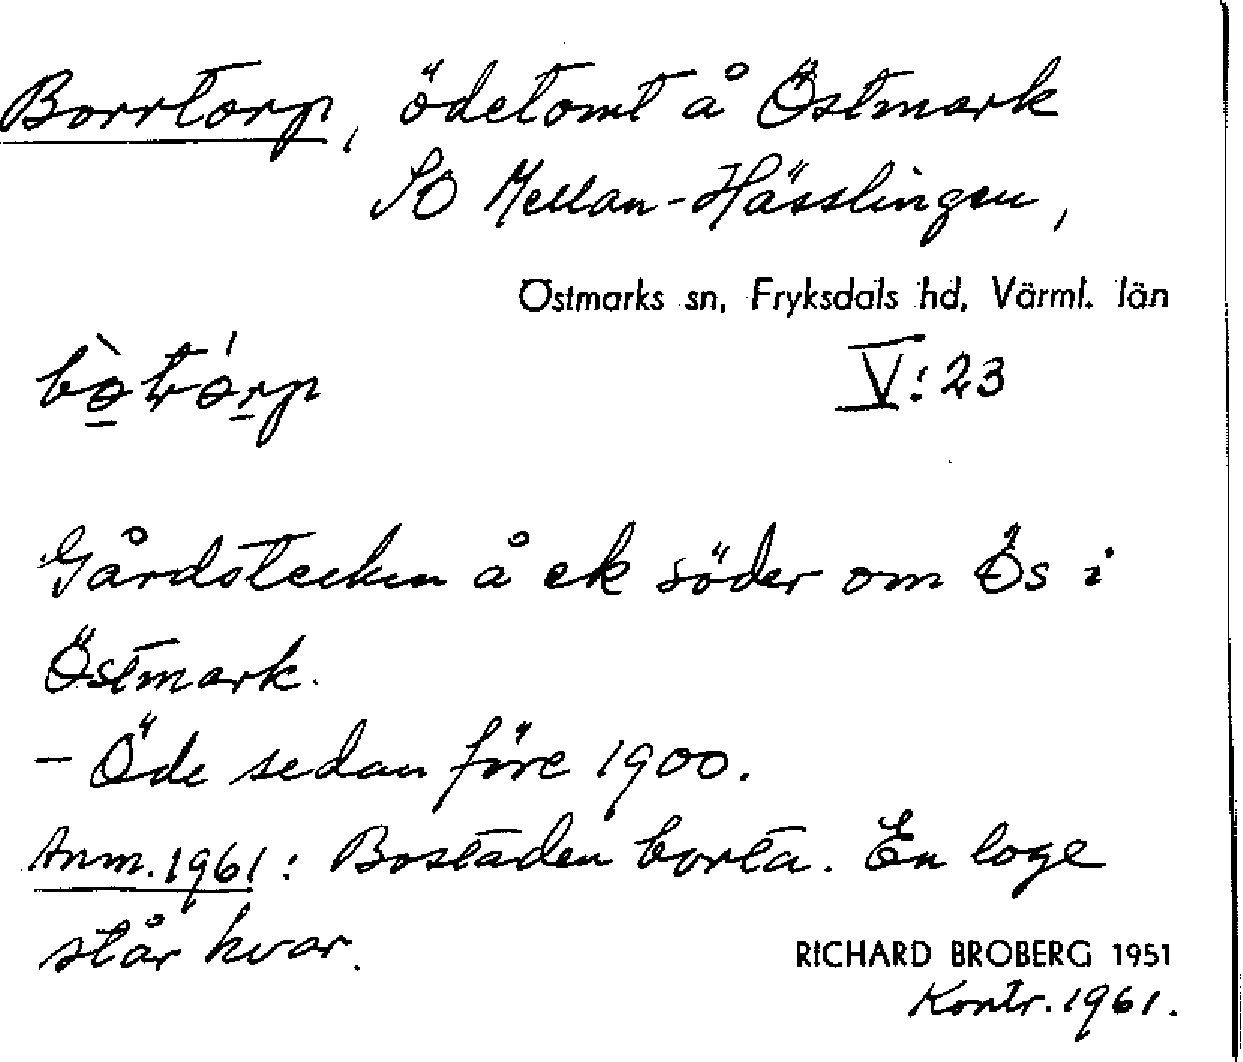 Borrtorp, ödetomt å Östmark
SO Mellan-Hässlingen,
Östmarks sn, Fryksdals hd, Värml. län
bòtórp
V:23
Gårdstecken å ek söder om Ös i
Östmark.
- Öde sedan före 1900.
Anm. 1961: Bostaden borta. En loge
står kvar.
RICHARD BROBERG 1951
Kontr. 1961.